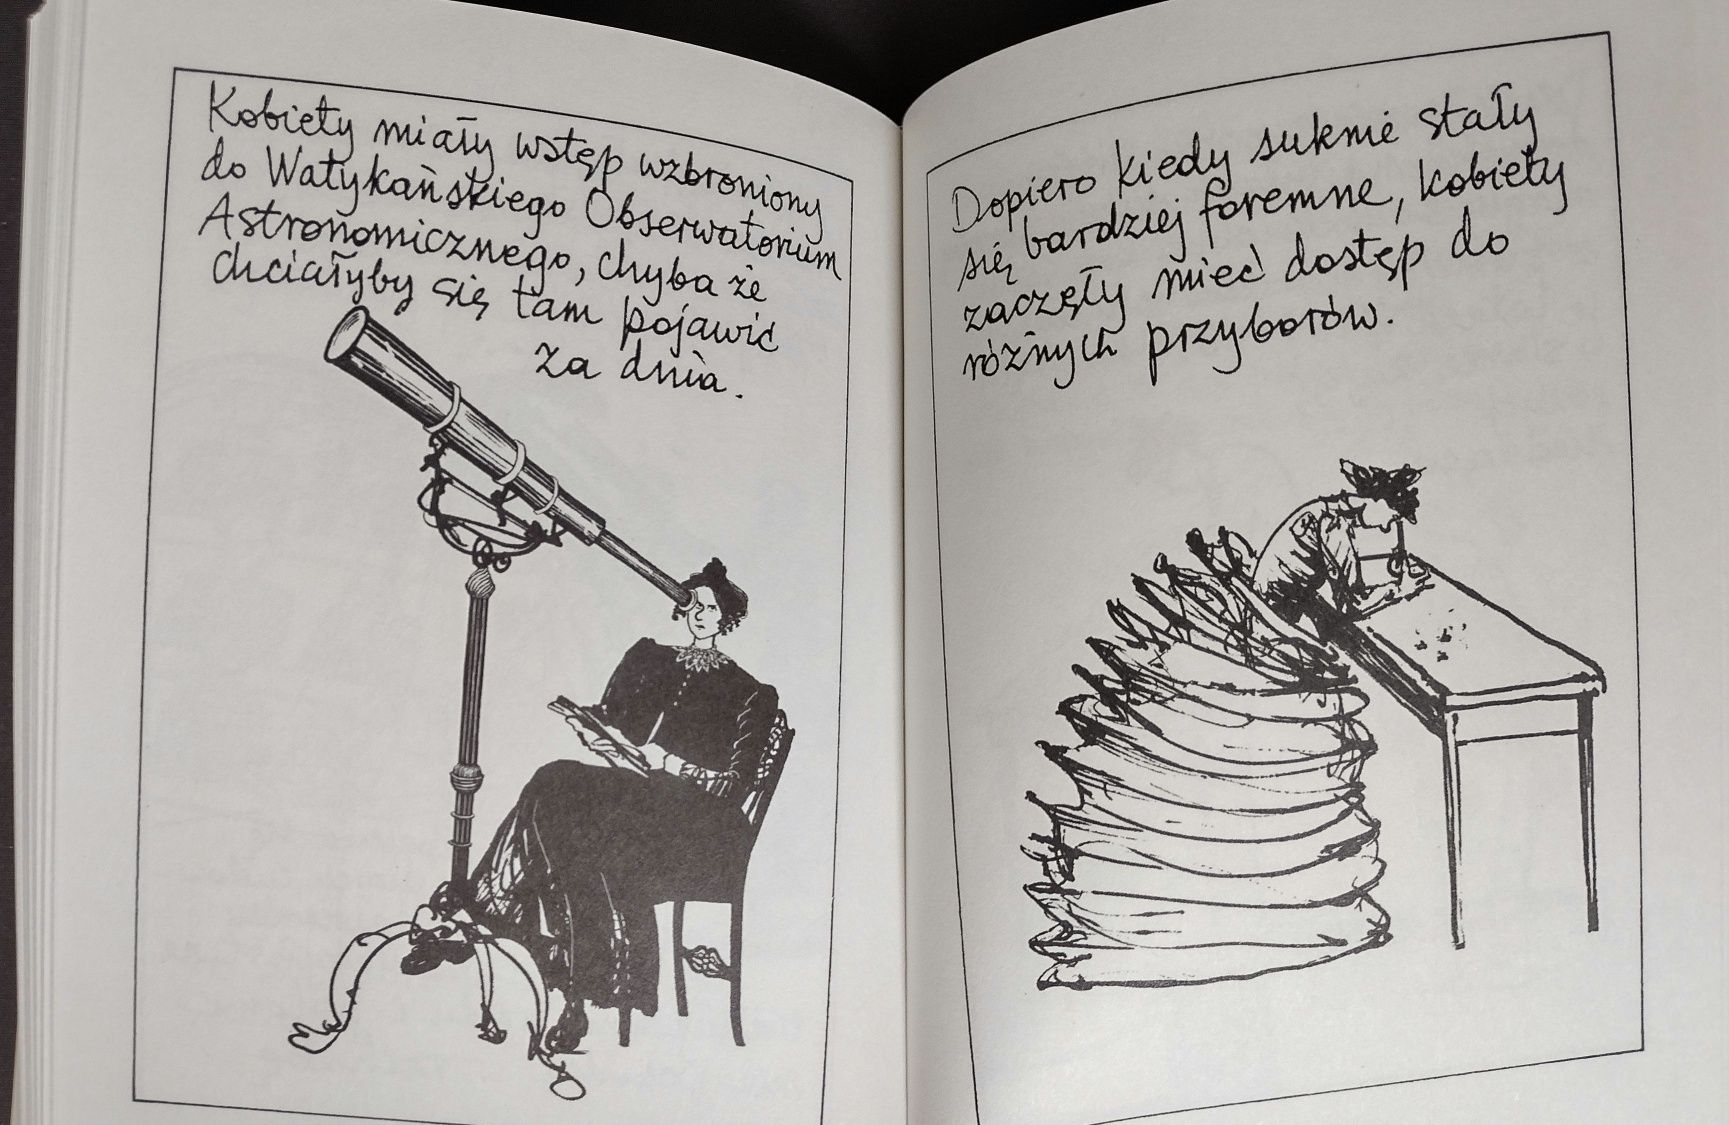 Kobiety miały wstęp wzbroniony
do Watykańskiego Obserwatorium
Astronomicznego, chyba że
chciałyby się tam pojawić
za dnia.
Dopiero kiedy suknie stały
się bardziej foremne, kobiety
zaczęły mieć dostęp do
różnych przyborów.